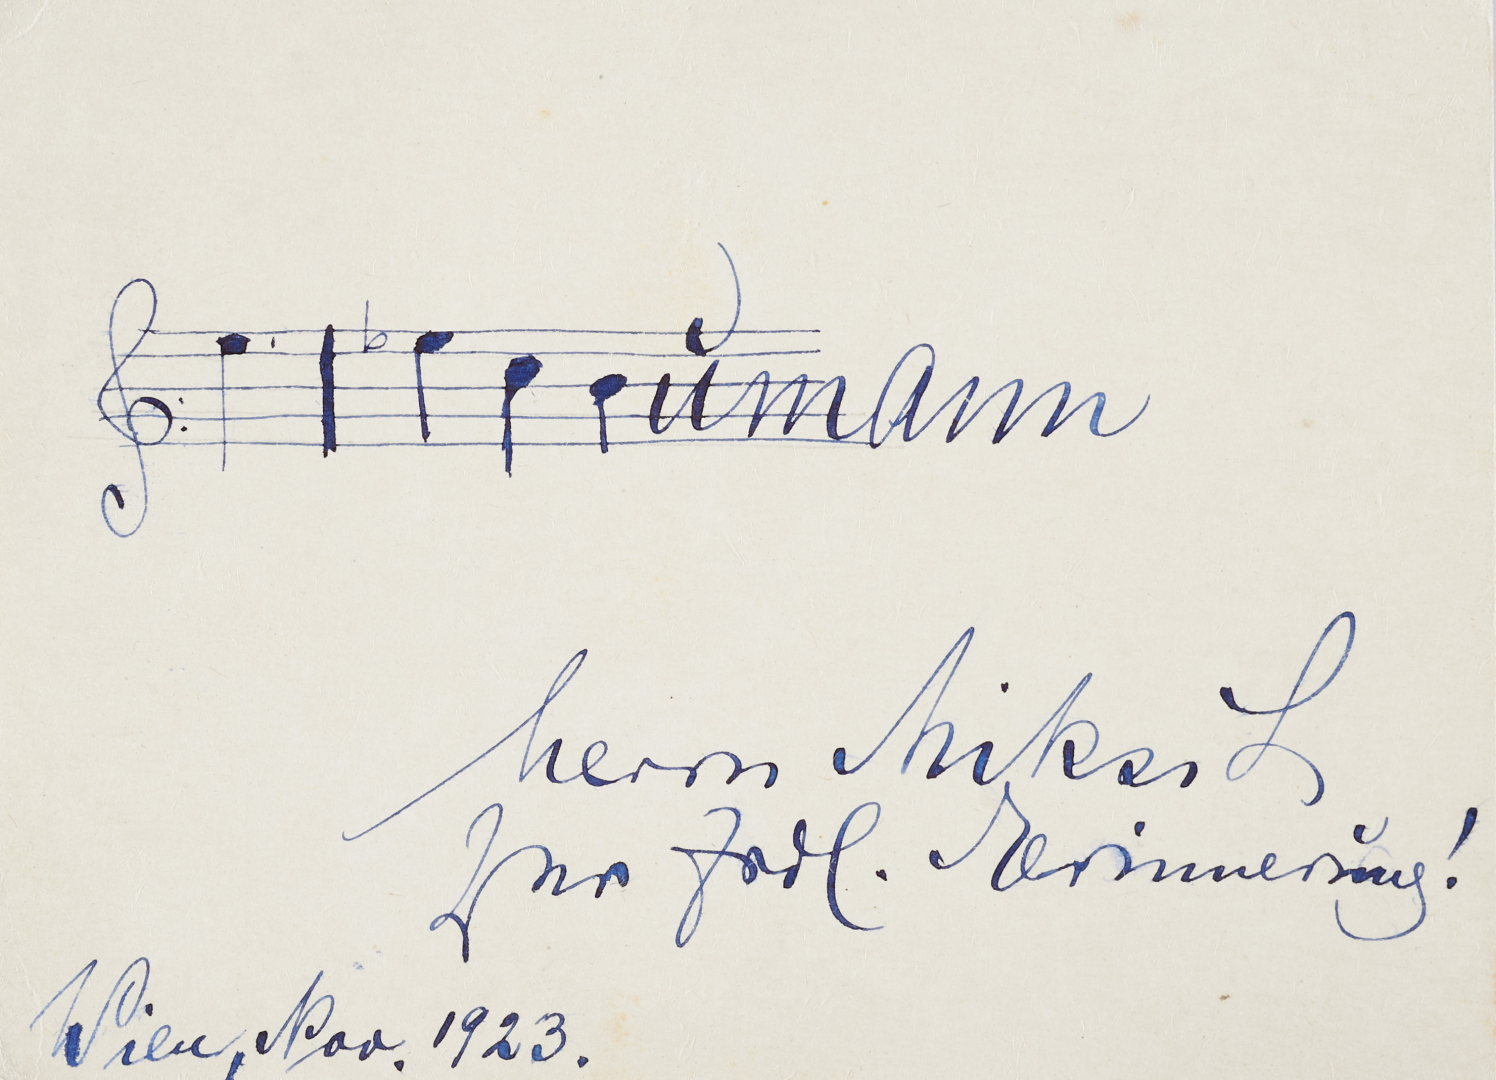 umann
Herrn
Zur frdl. Erinnerung!
Wien, Nov. 1923.